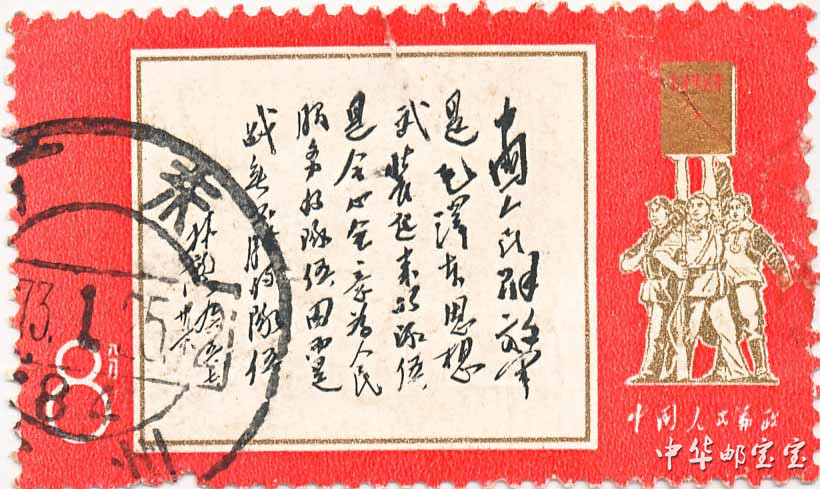 中國人民解放军
是毛澤东思想
武装起来的队伍
是全心全意为人民
服务的队伍因而是
战无不胜的队伍
林彪
8
八分
泰
73.1.25
8
州
中国人民邮政
中华邮宝宝